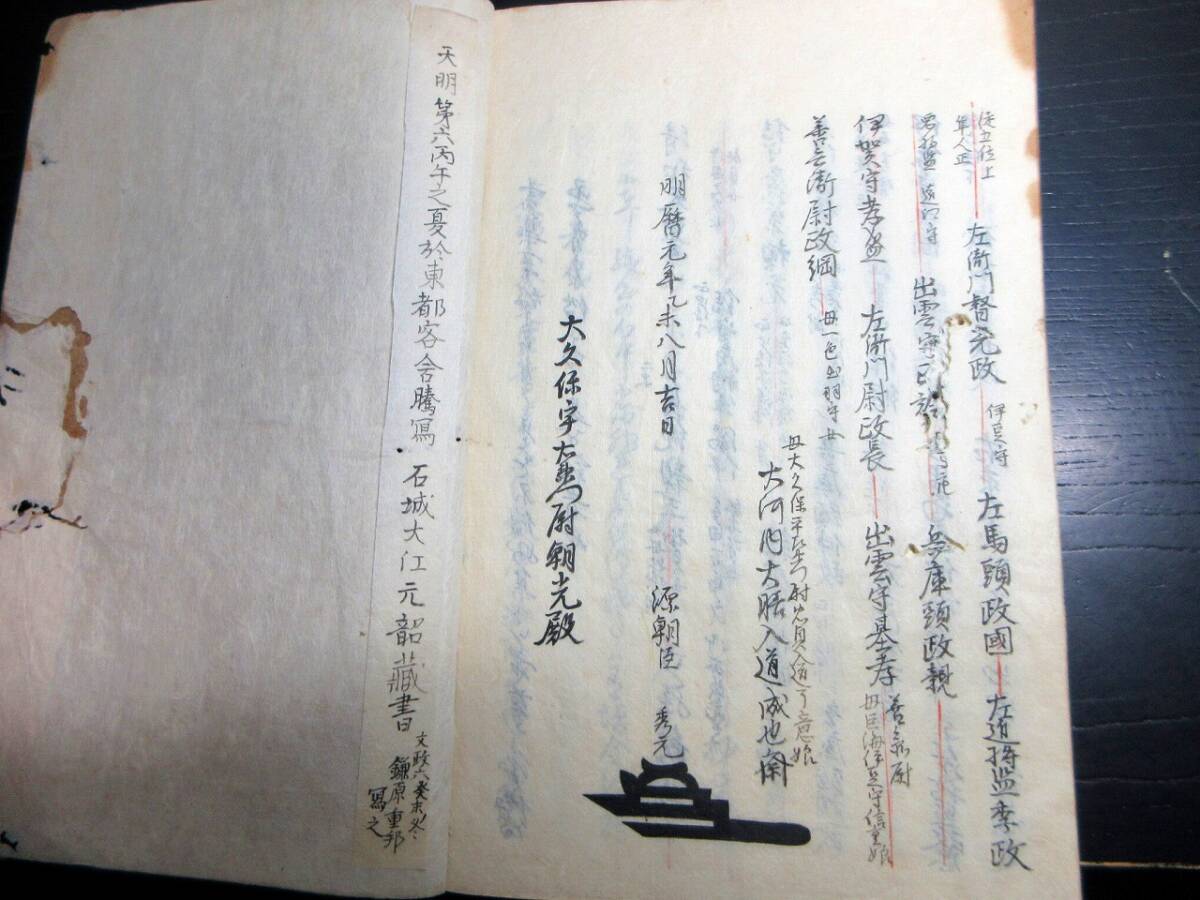 従五位上
隼人正
左衛門督光政
伊豆守
左馬頭政國
左近将監季政
出雲守
兵庫頭政親
伊賀守孝盛
左衛門尉政長
出雲守基孝
善兵衛尉
善兵衛尉政綱
母一色出羽守女
大河内大膳入道成也斎
明暦元年乙未八月吉日
源朝臣
秀元
大久保宇右衛門尉朝光殿
天明第六丙午之夏於東都客舎騰寫
石城大江元韶藏書
文政六癸未冬
鎌原重邦
寫之